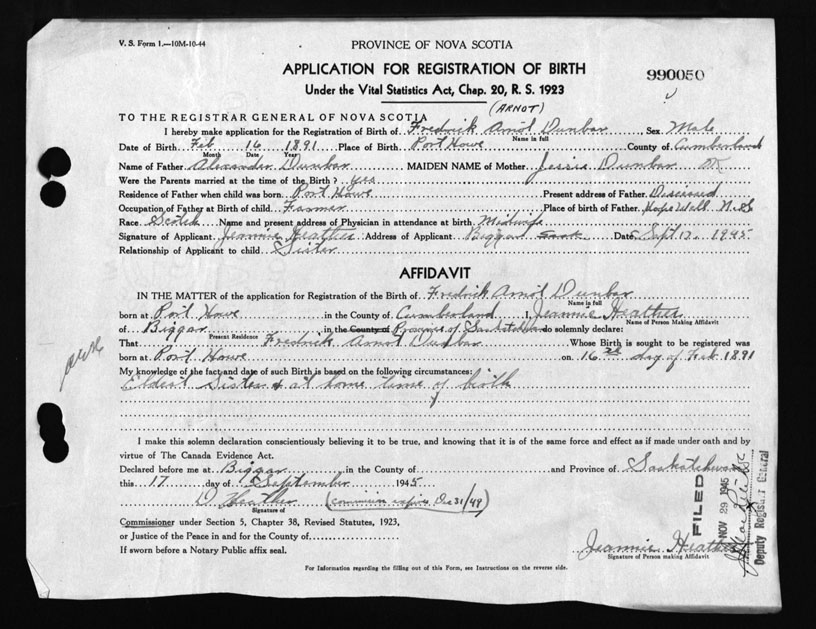 V. S. Form 1.—10M-10-44
PROVINCE OF NOVA SCOTIA
APPLICATION FOR REGISTRATION OF BIRTH
990050
Under the Vital Statistics Act, Chap. 20, R. S. 1923
(ARNOT)
TO THE REGISTRAR GENERAL OF NOVA SCOTIA
I hereby make application for the Registration of Birth of Fredrick Arnot Dunbar Sex Male
Name in full
Date of Birth Feb 16 1891 Place of Birth Port Howe County of Cumberland
Month Date Year
Name of Father Alexander Dunbar MAIDEN NAME of Mother Jessie Dunbar
Were the Parents married at the time of the Birth? yes
Residence of Father when child was born Port Howe Present address of Father Diseased
Occupation of Father at Birth of child Farmer Place of birth of Father Hope Well N.S
Race Scotch Name and present address of Physician in attendance at birth Midwife
Signature of Applicant Jeannie Heather Address of Applicant Biggar Sask. Date Sept 17. 1945
Relationship of Applicant to child Sister
AFFIDAVIT
IN THE MATTER of the application for Registration of the Birth of Fredrick Arnot Dunbar
Name in full
born at Port Howe in the County of Cumberland I, Jeannie Heather
Name of Person Making Affidavit
of Biggar in the County of Province of Saskatchewan do solemnly declare:
Present Residence
That Fredrick Arnot Dunbar Whose Birth is sought to be registered was
born at Port Howe on 16 day of Feb 1891
My knowledge of the fact and date of such Birth is based on the following circumstances:
Eldest Sister & at home time of birth
I make this solemn declaration conscientiously believing it to be true, and knowing that it is of the same force and effect as if made under oath and by
virtue of The Canada Evidence Act.
Declared before me at Biggar in the County of and Province of Saskatchewan
this 17 day of September 1945
D Heather (Commission expires Dec 31/49)
Signature of
Commissioner under Section 5, Chapter 38, Revised Statutes, 1923,
or Justice of the Peace in and for the County of
If sworn before a Notary Public affix seal.
Jeannie Heather
Signature of Person making Affidavit
For Information regarding the filling out of this Form, see Instructions on the reverse side.
FILED
NOV 29 1945
Deputy Registrar General